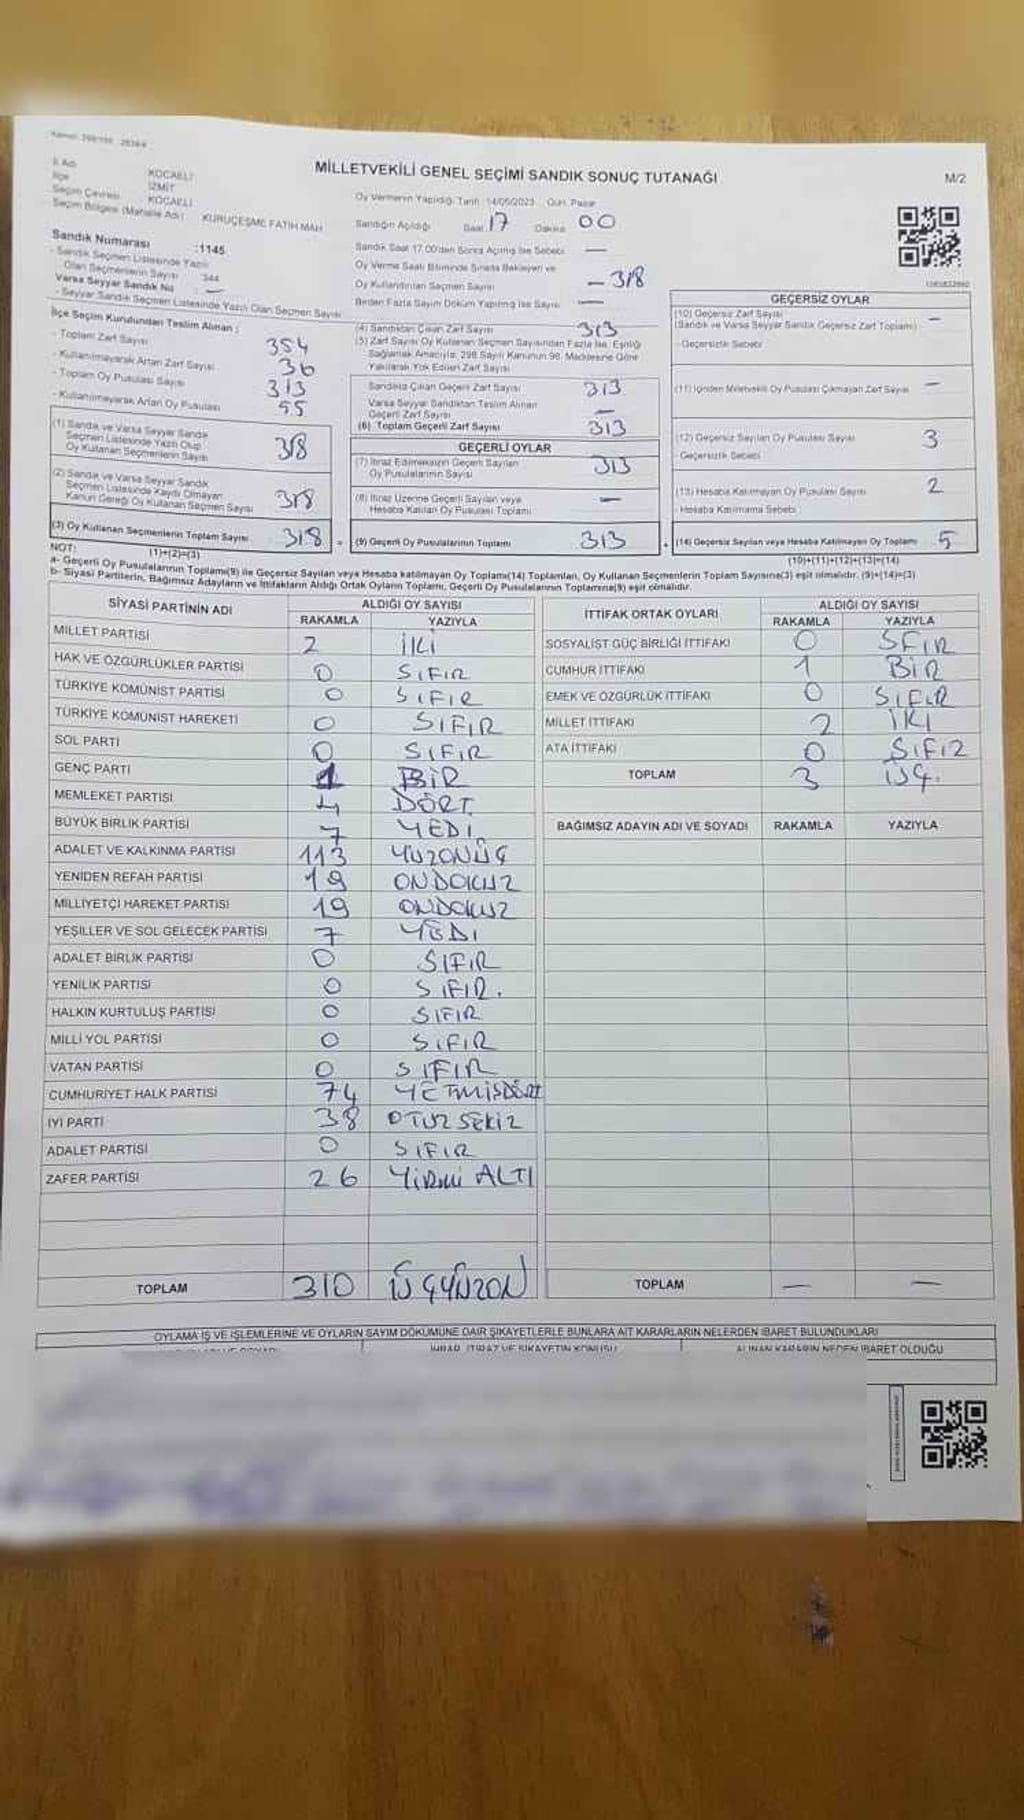 MİLLETVEKİLİ GENEL SEÇİMİ SANDIK SONUÇ TUTANAĞI
M/2
İl Adı KOCAELİ
İlçe İZMİT
Seçim Çevresi KOCAELİ
Seçim Bölgesi (Mahalle Adı) KURUÇEŞME FATİH MAH
Sandık Numarası :1145
- Sandık Seçmen Listesinde Yazılı
Olan Seçmenlerin Sayısı 344
Varsa Seyyar Sandık No —
- Seyyar Sandık Seçmen Listesinde Yazılı Olan Seçmen Sayısı
Oy Vermenin Yapıldığı Tarih : 14/05/2023 Gün: Pazar
Sandığın Açıldığı Saat 17 Dakika 00
Sandık Saat 17.00'den Sonra Açılmış İse Sebebi —
Oy Verme Saati Bitiminde Sırada Bekleyen ve
Oy Kullandırılan Seçmen Sayısı — 318
Birden Fazla Sayım Döküm Yapılmış İse Sayısı —
İlçe Seçim Kurulundan Teslim Alınan :
- Toplam Zarf Sayısı 354
- Kullanılmayarak Artan Zarf Sayısı 36
- Toplam Oy Pusulası Sayısı 313
- Kullanılmayarak Artan Oy Pusulası 55
(1) Sandık ve Varsa Seyyar Sandık
Seçmen Listesinde Yazılı Olup
Oy Kullanan Seçmenlerin Sayısı 318
(2) Sandık ve Varsa Seyyar Sandık
Seçmen Listesinde Kaydı Olmayan
Kanun Gereği Oy Kullanan Seçmen Sayısı 318
(3) Oy Kullanan Seçmenlerin Toplam Sayısı 318
(1)+(2)=(3)
(4) Sandıktan Çıkan Zarf Sayısı 313
(5) Zarf Sayısı Oy Kullanan Seçmen Sayısından Fazla İse, Eşitliği
Sağlamak Amacıyla, 298 Sayılı Kanunun 98. Maddesine Göre
Yakılarak Yok Edilen Zarf Sayısı
Sandıkta Çıkan Geçerli Zarf Sayısı 313
Varsa Seyyar Sandıktan Teslim Alınan
Geçerli Zarf Sayısı —
(6) Toplam Geçerli Zarf Sayısı 313
GEÇERLİ OYLAR
(7) İtiraz Edilmeksizin Geçerli Sayılan
Oy Pusulalarının Sayısı 313
(8) İtiraz Üzerine Geçerli Sayılan veya
Hesaba Katılan Oy Pusulası Toplamı —
= (9) Geçerli Oy Pusulalarının Toplamı 313
GEÇERSİZ OYLAR
(10) Geçersiz Zarf Sayısı —
(Sandık ve Varsa Seyyar Sandık Geçersiz Zarf Toplamı)
- Geçersizlik Sebebi
(11) İçinden Milletvekili Oy Pusulası Çıkmayan Zarf Sayısı —
(12) Geçersiz Sayılan Oy Pusulası Sayısı 3
- Geçersizlik Sebebi
(13) Hesaba Katılmayan Oy Pusulası Sayısı 2
- Hesaba Katılmama Sebebi
+ (14) Geçersiz Sayılan veya Hesaba Katılmayan Oy Toplamı 5
(10)+(11)+(12)+(13)=(14)
NOT:
a- Geçerli Oy Pusulalarının Toplamı(9) ile Geçersiz Sayılan veya Hesaba katılmayan Oy Toplamı(14) Toplamları, Oy Kullanan Seçmenlerin Toplam Sayısına(3) eşit olmalıdır. (9)+(14)=(3)
b- Siyasi Partilerin, Bağımsız Adayların ve İttifakların Aldığı Ortak Oyların Toplamı, Geçerli Oy Pusulalarının Toplamına(9) eşit olmalıdır.
SİYASİ PARTİNİN ADI ALDIĞI OY SAYISI
RAKAMLA YAZIYLA
MİLLET PARTİSİ 2 İKİ
HAK VE ÖZGÜRLÜKLER PARTİSİ 0 SIFIR
TÜRKİYE KOMÜNİST PARTİSİ 0 SIFIR
TÜRKİYE KOMÜNİST HAREKETİ 0 SIFIR
SOL PARTİ 0 SIFIR
GENÇ PARTİ 1 BİR
MEMLEKET PARTİSİ 4 DÖRT
BÜYÜK BİRLİK PARTİSİ 7 YEDİ
ADALET VE KALKINMA PARTİSİ 113 YUZONÜÇ
YENİDEN REFAH PARTİSİ 19 ONDOKUZ
MİLLİYETÇİ HAREKET PARTİSİ 19 ONDOKUZ
YEŞİLLER VE SOL GELECEK PARTİSİ 7 YEDİ
ADALET BİRLİK PARTİSİ 0 SIFIR
YENİLİK PARTİSİ 0 SIFIR.
HALKIN KURTULUŞ PARTİSİ 0 SIFIR
MİLLİ YOL PARTİSİ 0 SIFIR
VATAN PARTİSİ 0 SIFIR
CUMHURİYET HALK PARTİSİ 74 YETMİŞDÖRT
İYİ PARTİ 38 OTUZ SEKİZ
ADALET PARTİSİ 0 SIFIR
ZAFER PARTİSİ 26 YİRMİ ALTI
TOPLAM 310 ÜÇYÜZON
İTTİFAK ORTAK OYLARI ALDIĞI OY SAYISI
RAKAMLA YAZIYLA
SOSYALİST GÜÇ BİRLİĞİ İTTİFAKI 0 SFIR
CUMHUR İTTİFAKI 1 BİR
EMEK VE ÖZGÜRLÜK İTTİFAKI 0 SIFIR
MİLLET İTTİFAKI 2 İKİ
ATA İTTİFAKI 0 SIFIR
TOPLAM 3 ÜÇ.
BAĞIMSIZ ADAYIN ADI VE SOYADI RAKAMLA YAZIYLA
TOPLAM — —
OYLAMA İŞ VE İŞLEMLERİNE VE OYLARIN SAYIM DÖKÜMÜNE DAİR ŞİKAYETLERLE BUNLARA AİT KARARLARIN NELERDEN İBARET BULUNDUKLARI
İHBAR, İTİRAZ VE ŞİKAYETİN KONUSU ALINAN KARARIN NEDEN İBARET OLDUĞU